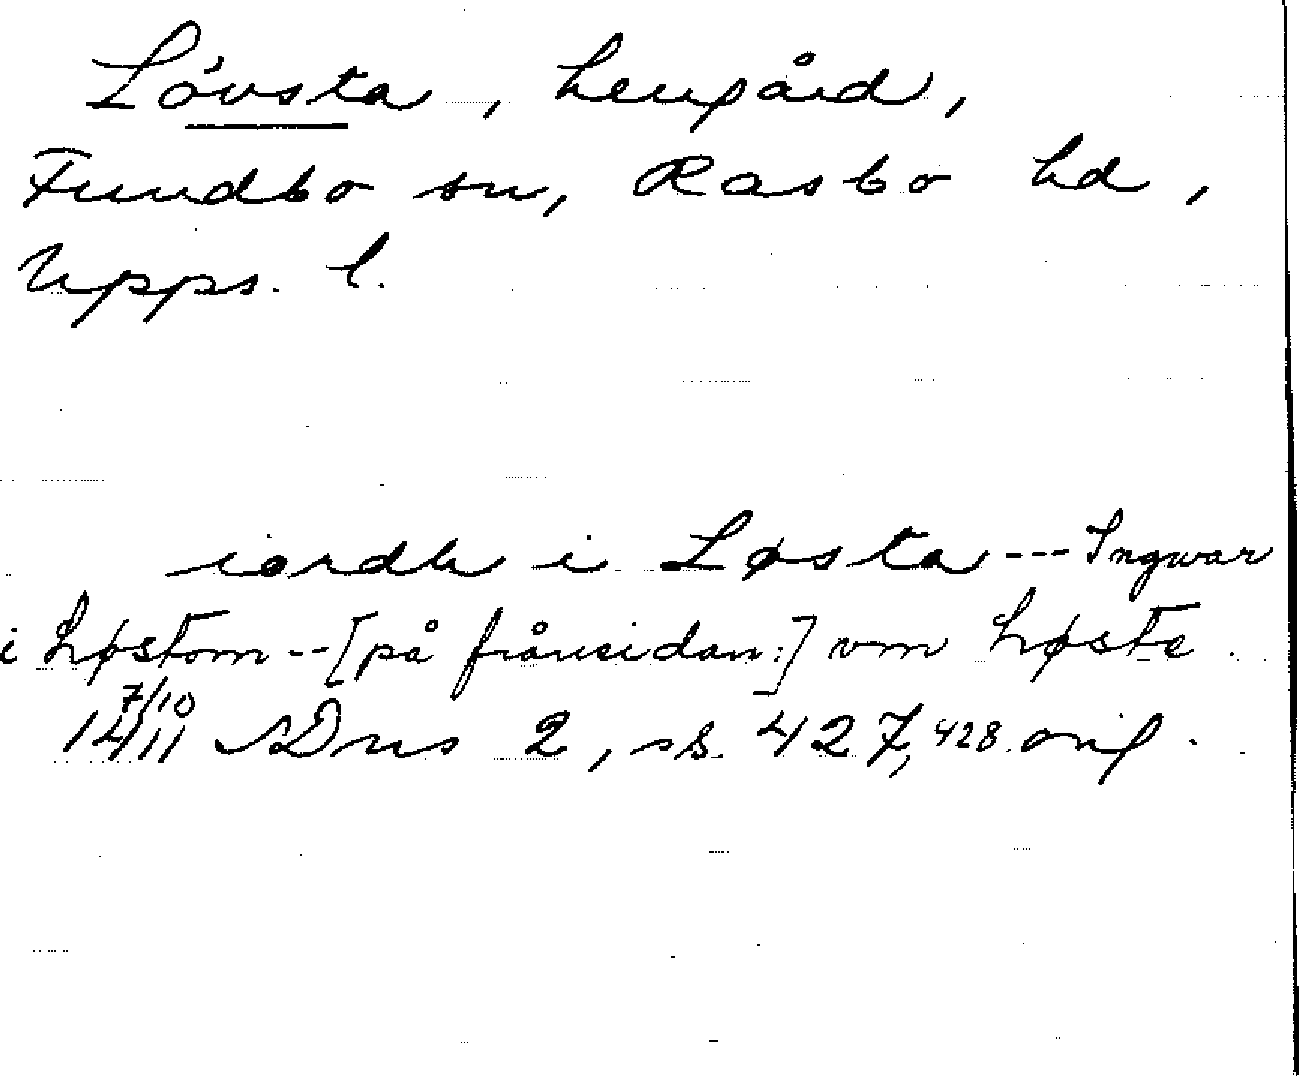 Lövsta, herrgård,
Funbo sn, Rasbo hd,
Upps. l.
iordh i Løsta --- Ingwar
i Løstom -- [på frånsidan:] vm Løste.
7/10
1411 SDns 2, s. 427, 428 orig.